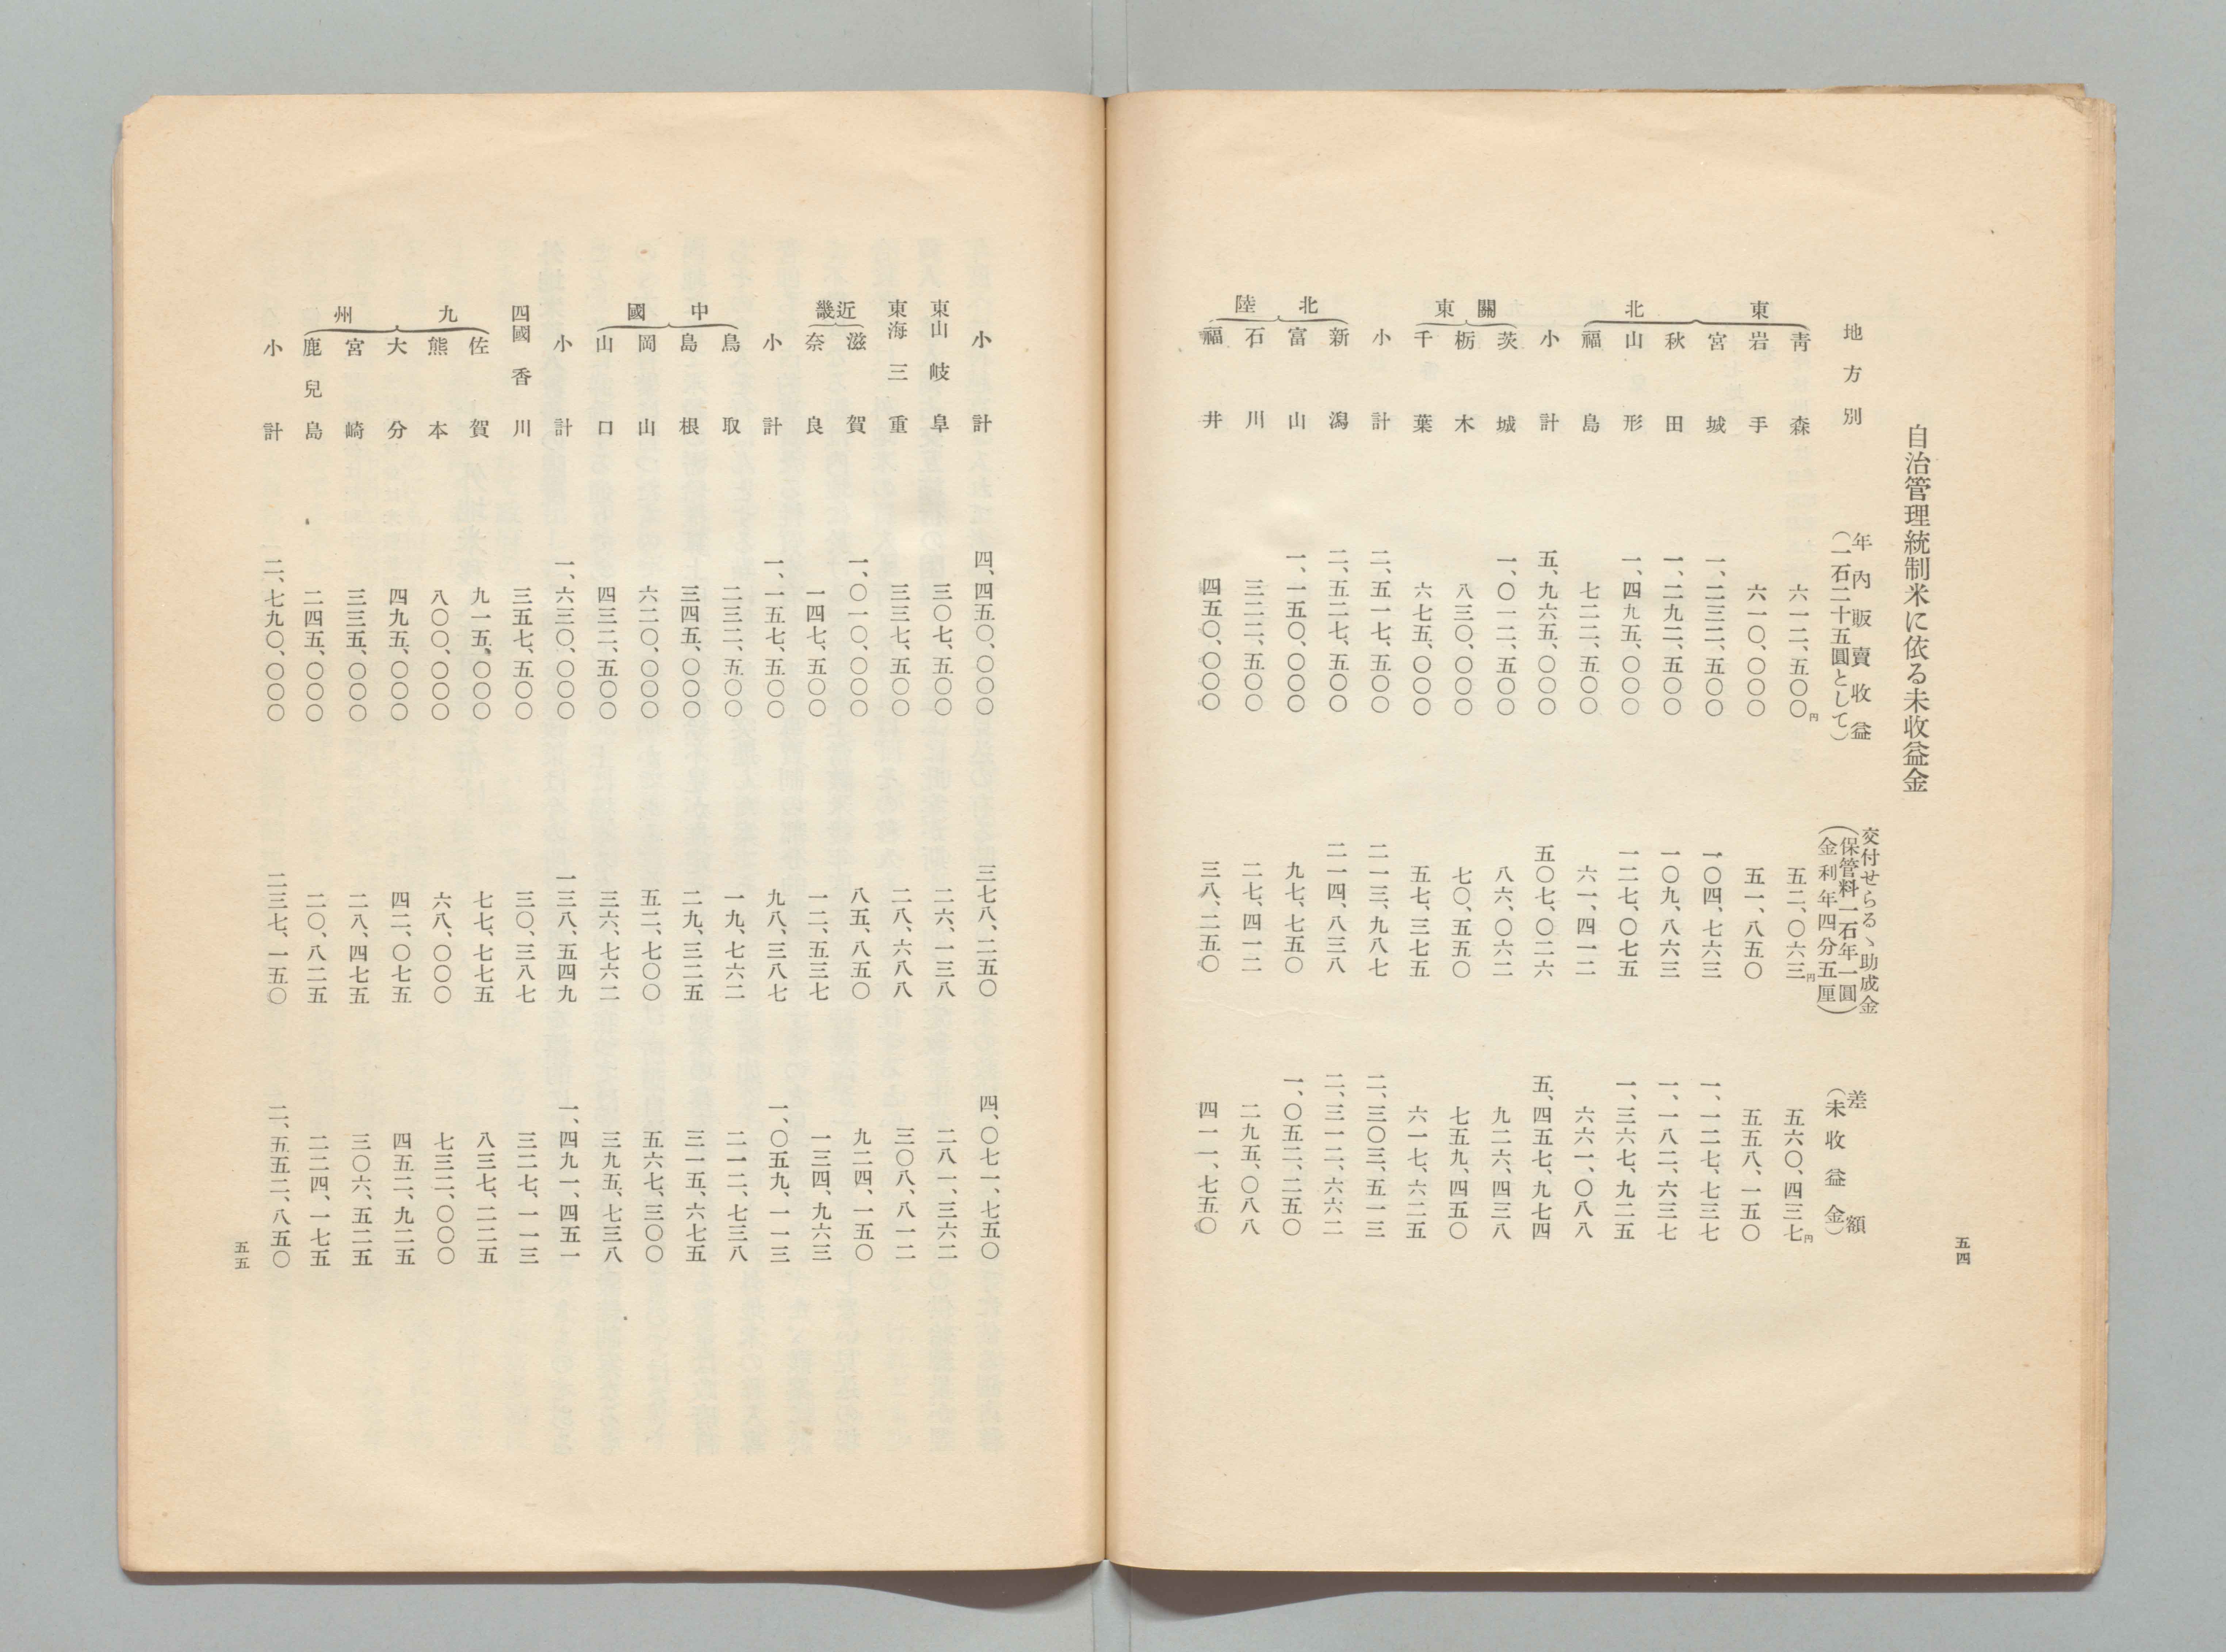 五四
自治管理統制米に依る未收益金
地方別 年內販賣收益(一石二十五圓として) 交付せらるゝ助成金(保管料一石年一圓 金利年四分五厘) 差額(未收益金)
東北
靑森 六一二、五〇〇円 五二、〇六三円 五六〇、四三七円
岩手 六一〇、〇〇〇 五一、八五〇 五五八、一五〇
宮城 一、二三二、五〇〇 一〇四、七六三 一、一二七、七三七
秋田 一、二九二、五〇〇 一〇九、八六三 一、一八二、六三七
山形 一、四九五、〇〇〇 一二七、〇七五 一、三六七、九二五
福島 七二二、五〇〇 六一、四一二 六六一、〇八八
小計 五、九六五、〇〇〇 五〇七、〇二六 五、四五七、九七四
關東
茨城 一、〇一二、五〇〇 八六、〇六二 九二六、四三八
栃木 八三〇、〇〇〇 七〇、五五〇 七五九、四五〇
千葉 六七五、〇〇〇 五七、三七五 六一七、六二五
小計 二、五一七、五〇〇 二一三、九八七 二、三〇三、五一三
北陸
新潟 二、五二七、五〇〇 二一四、八三八 二、三一二、六六二
富山 一、一五〇、〇〇〇 九七、七五〇 一、〇五二、二五〇
石川 三二二、五〇〇 二七、四一二 二九五、〇八八
福井 四五〇、〇〇〇 三八、二五〇 四一一、七五〇
小計 四、四五〇、〇〇〇 三七八、二五〇 四、〇七一、七五〇
東山 岐阜 三〇七、五〇〇 二六、一三八 二八一、三六二
東海 三重 三三七、五〇〇 二八、六八八 三〇八、八一二
近畿
滋賀 一、〇一〇、〇〇〇 八五、八五〇 九二四、一五〇
奈良 一四七、五〇〇 一二、五三七 一三四、九六三
小計 一、一五七、五〇〇 九八、三八七 一、〇五九、一一三
中國
鳥取 二三二、五〇〇 一九、七六二 二一二、七三八
島根 三四五、〇〇〇 二九、三二五 三一五、六七五
岡山 六二〇、〇〇〇 五二、七〇〇 五六七、三〇〇
山口 四三二、五〇〇 三六、七六二 三九五、七三八
小計 一、六三〇、〇〇〇 一三八、五四九 一、四九一、四五一
四國 香川 三五七、五〇〇 三〇、三八七 三二七、一一三
九州
佐賀 九一五、〇〇〇 七七、七七五 八三七、二二五
熊本 八〇〇、〇〇〇 六八、〇〇〇 七三二、〇〇〇
大分 四九五、〇〇〇 四二、〇七五 四五二、九二五
宮崎 三三五、〇〇〇 二八、四七五 三〇六、五二五
鹿兒島 二四五、〇〇〇 二〇、八二五 二二四、一七五
小計 二、七九〇、〇〇〇 二三七、一五〇 二、五五二、八五〇
五五